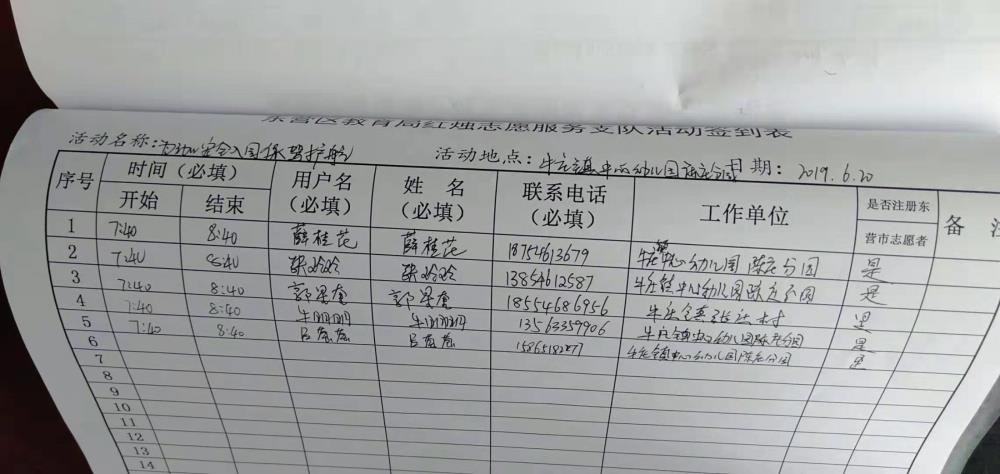 东营区教育局红烛志愿服务支队活动签到表
活动名称:为幼儿安全入园保驾护航 活动地点:牛庄镇中心幼儿园陈庄分园 日期: 2019.6.20
序号 时间(必填) 用户名(必填) 姓 名(必填) 联系电话(必填) 工作单位 是否注册东营市志愿者 备 注
开始 结束
1 7:40 8:40 薛桂花 薛桂花 18754613679 牛庄镇中心幼儿园陈庄分园 是
2 7:40 8:40 张玲玲 张玲玲 13854612587 牛庄镇中心幼儿园陈庄分园 是
3 7:40 8:40 郭 郭 18554686956 牛庄镇张庄村 是
4 7:40 8:40 牛明明 牛明明 13563359906 牛庄镇中心幼儿园陈庄分园 是
5 7:40 8:40 吕 吕 牛庄镇中心幼儿园陈庄分园 是
6
7
8
9
10
11
12
13
14